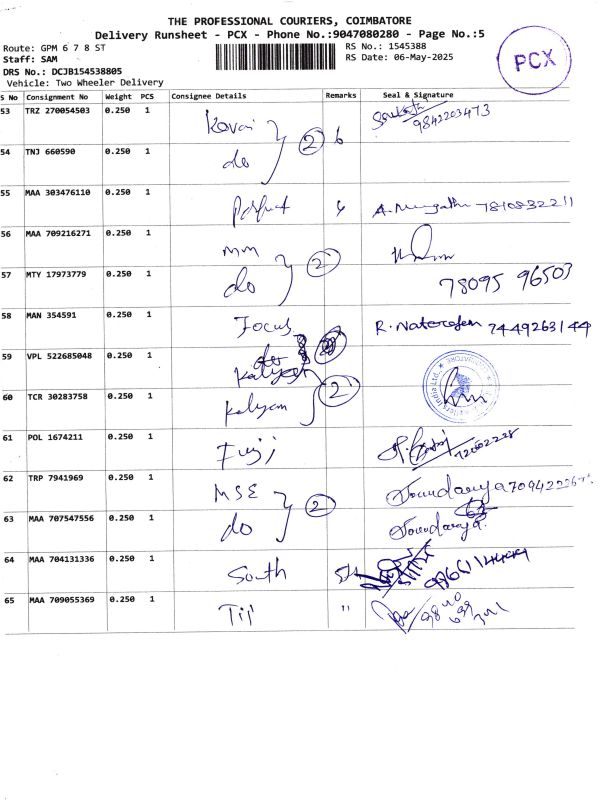 THE PROFESSIONAL COURIERS, COIMBATORE
Delivery Runsheet - PCX - Phone No.:9047080280 - Page No.:5
Route: GPM 6 7 8 ST
RS No.: 1545388
Staff: SAM
RS Date: 06-May-2025
DRS No.: DCJB154538805
Vehicle: Two Wheeler Delivery
PCX
S No Consignment No Weight PCS Consignee Details Remarks Seal & Signature
53 TRZ 270054503 0.250 1 Kovai 2 6
9842203473
54 TNJ 660590 0.250 1 do
55 MAA 303476110 0.250 1 Perfect 7810832211
56 MAA 709216271 0.250 1 mm 2
57 MTY 17973779 0.250 1 do 78095 96503
58 MAN 354591 0.250 1 Focus R. Natarajan 7449263144
59 VPL 522685048 0.250 1 Kalyan
60 TCR 30283758 0.250 1 Kalyan 2
61 POL 1674211 0.250 1 Fuji
62 TRP 7941969 0.250 1 MSE 2 Soundarya
63 MAA 707547556 0.250 1 do Soundarya
64 MAA 704131336 0.250 1 South
65 MAA 709055369 0.250 1 "